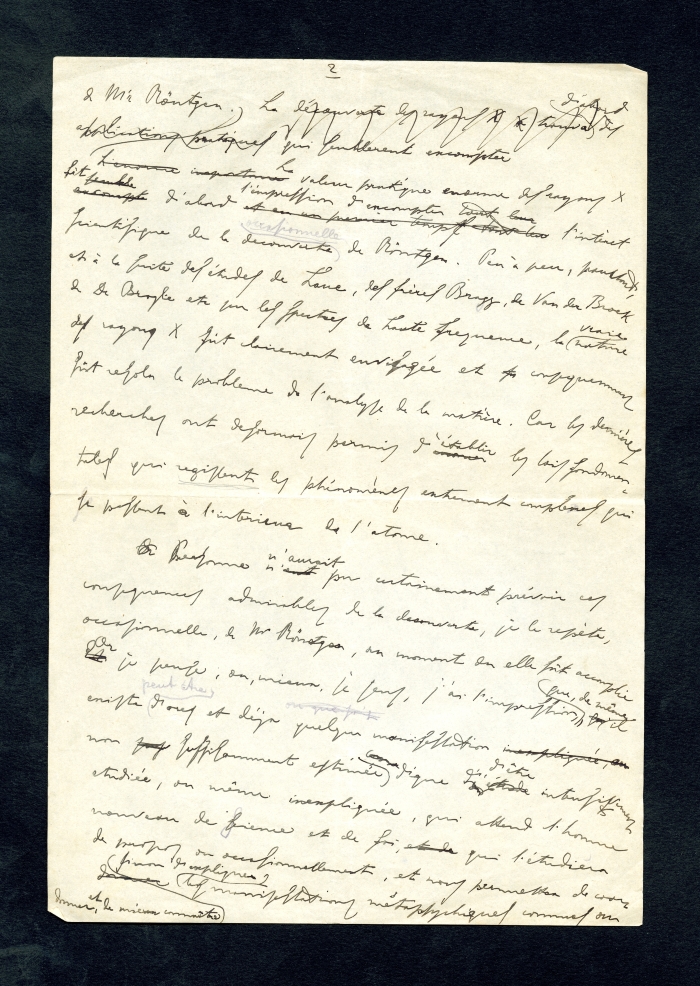 2
de Mr Röntgen. La découverte des rayons X trouva d'abord des
applications pratiques qui semblerent escompter
l'énorme importance La valeur pratique énorme des rayons X
fit semble escompte d'abord l'impression d'escompter tout l'intérêt et en un premier temps
scientifique de la découverte occasionnelle de Röntgen. Peu à peu, pourtant,
et à la suite des études de Laue, des frères Bragg, de Van den Broek
de De Broglie etc sur les spectres de haute frequence, la vraie nature
des rayons X fut clairement envisagée et consequemment
fut resolu le problème de l'analyse de la matière. Car les dernières
recherches ont desormais permis d'établir les lois fondamen-
tales qui regissent les phénomènes extremement complexes qui
se passent à l'interieur de l'atome.
Personne n'aurait pu certainement prévoir ces
consequences admirables de la decouverte, je le repète,
occasionnelle, de Mr Röntgen, au moment ou elle fut accomplie
Or je pense, ou, mieux, je sens, j'ai l'impression, que, de même il
existe peut être d'ores et déja quelque manifestation inexpliquée, ou
non pas suffisamment estimée comme digne d'être interessement
etudiée, ou même inexpliquée, qui attend l'homme
nouveau de science et de foi, qui l'étudiera
de propos ou occasionnellement, et nous permettra de
donner, sinon d'expliquer les manifestations métapsychiques connues ou
et de mieux connaître